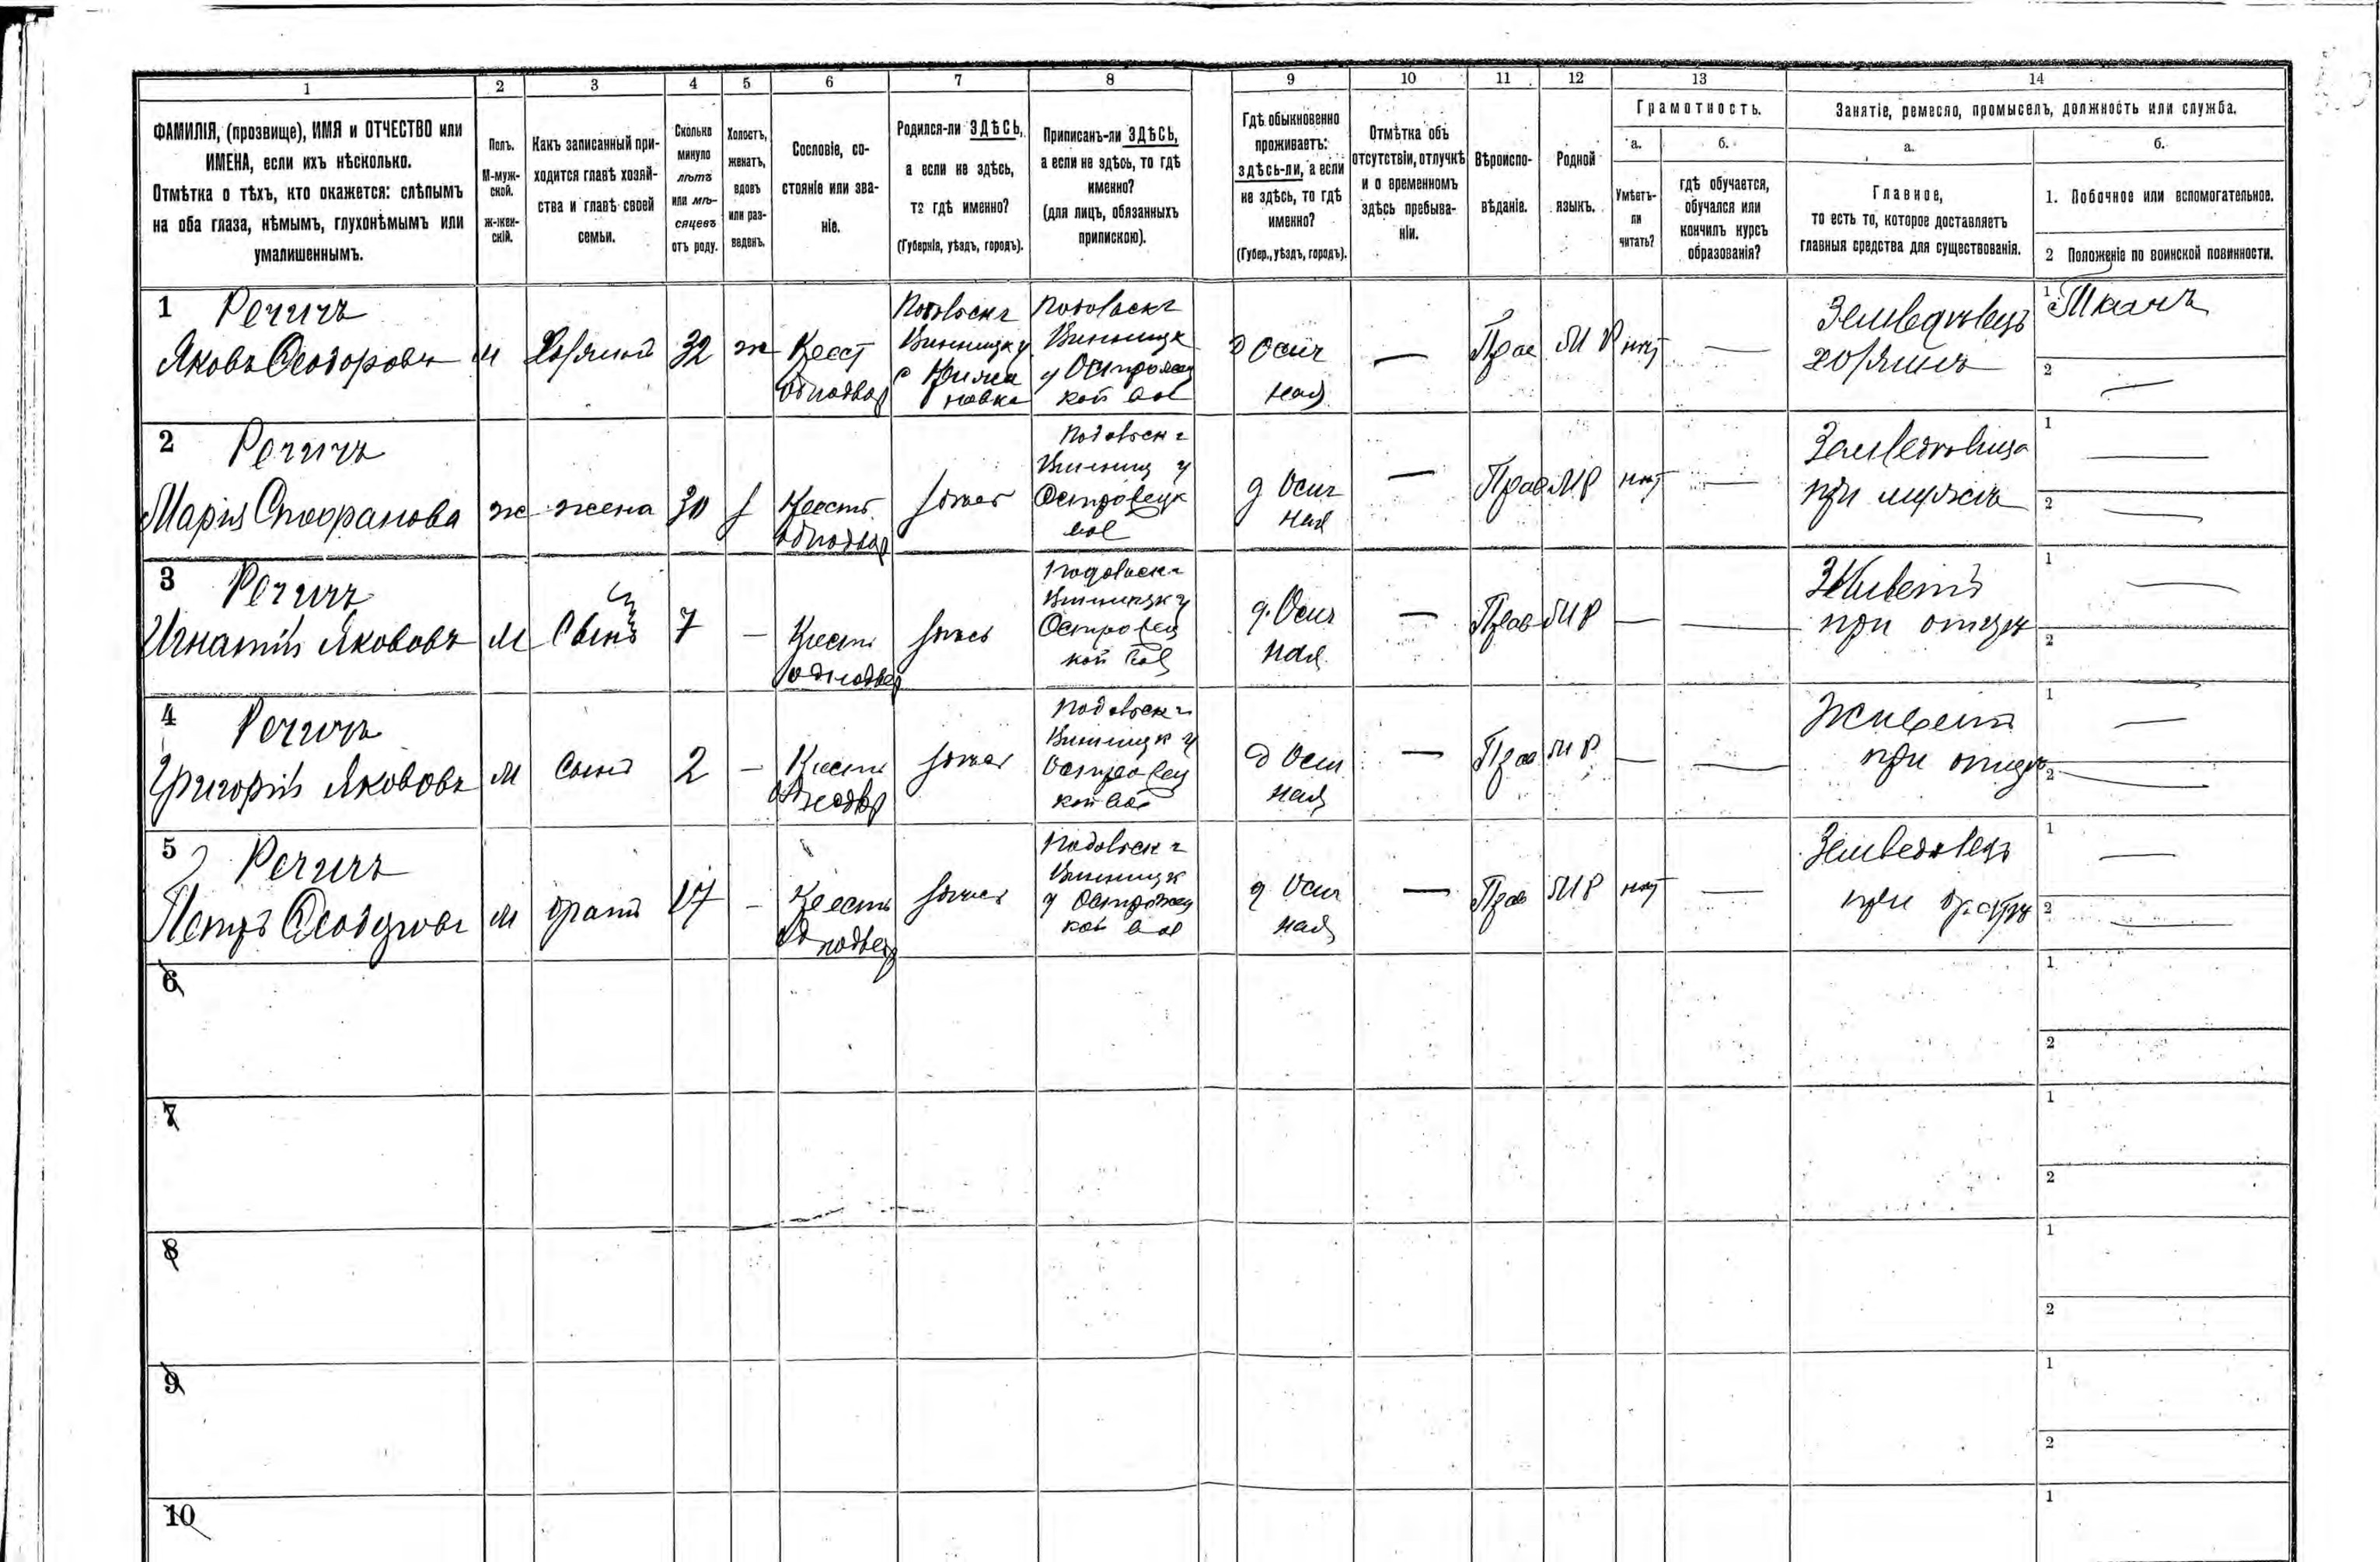 1 2 3 4 5 6 7 8 9 10 11 12 13 14
ФАМИЛІЯ, (прозвище), ИМЯ и ОТЧЕСТВО или
ИМЕНА, если ихъ нѣсколько.
Отмѣтка о тѣхъ, кто окажется: слѣпымъ
на оба глаза, нѣмымъ, глухонѣмымъ или
умалишеннымъ.
Полъ.
М-муж-
ской.
Ж-жен-
скій.
Какъ записанный при-
ходится главѣ хозяй-
ства и главѣ своей
семьи.
Сколько
минуло
лѣтъ
или мѣ-
сяцевъ
отъ роду.
Холостъ,
женатъ,
вдовъ
или раз-
веденъ.
Сословіе, со-
стояніе или зва-
ніе.
Родился-ли ЗДѢСЬ,
а если не здѣсь,
то гдѣ именно?
(Губернія, уѣздъ, городъ).
Приписанъ-ли ЗДѢСЬ,
а если не здѣсь, то гдѣ
именно?
(для лицъ, обязанныхъ
припискою).
Гдѣ обыкновенно
проживаетъ:
здѣсь-ли, а если
не здѣсь, то гдѣ
именно?
(Губер., уѣздъ, городъ).
Отмѣтка объ
отсутствіи, отлучкѣ
и о временномъ
здѣсь пребыва-
ніи.
Вѣроиспо-
вѣданіе.
Родной
языкъ.
Грамотность.
а.
Умѣетъ-
ли
читать?
б.
гдѣ обучается,
обучался или
кончилъ курсъ
образованія?
Занятіе, ремесло, промыселъ, должность или служба.
а.
Главное,
то есть то, которое доставляетъ
главныя средства для существованія.
б.
1. Побочное или вспомогательное.
2 Положеніе по воинской повинности.
1 Речичъ
Яковъ Ѳеодоровъ
м
Хозяинъ
32
ж
Крест
однодвор
Подольск г
Винницк у
Подольск г
Винницк
кой вол
—
Прав
М Р
нѣт
—
хозяинъ
1 Ткачъ
2 —
2 Речичъ
Марія
ж
жена
30
Крестъ
однодвор
Подольск г
Винниц у
вол
—
Прав
МР
нѣт
—
при мужѣ
1 —
2 —
3 Речичъ
Игнатій Якововъ
м
Сынъ
7
—
Крестъ
однодвор
Подольск г
Винницк у
кой вол
—
Прав
МР
—
—
Живетъ
при отцѣ
1 —
2
4 Речичъ
Григорій Якововъ
м
сынъ
2
—
Крестъ
однодвор
Подольск г
Винницк у
кой вол
—
Прав
МР
—
—
Живетъ
при отцѣ
1 —
2 —
5 Речичъ
Петръ
м
братъ
17
—
Крестъ
однодвор
Подольск г
Винницк
кой вол
—
Прав
МР
нѣт
—
при братѣ
1 —
2 —
6
1
2
7
1
2
8
1
2
9
1
2
10
1